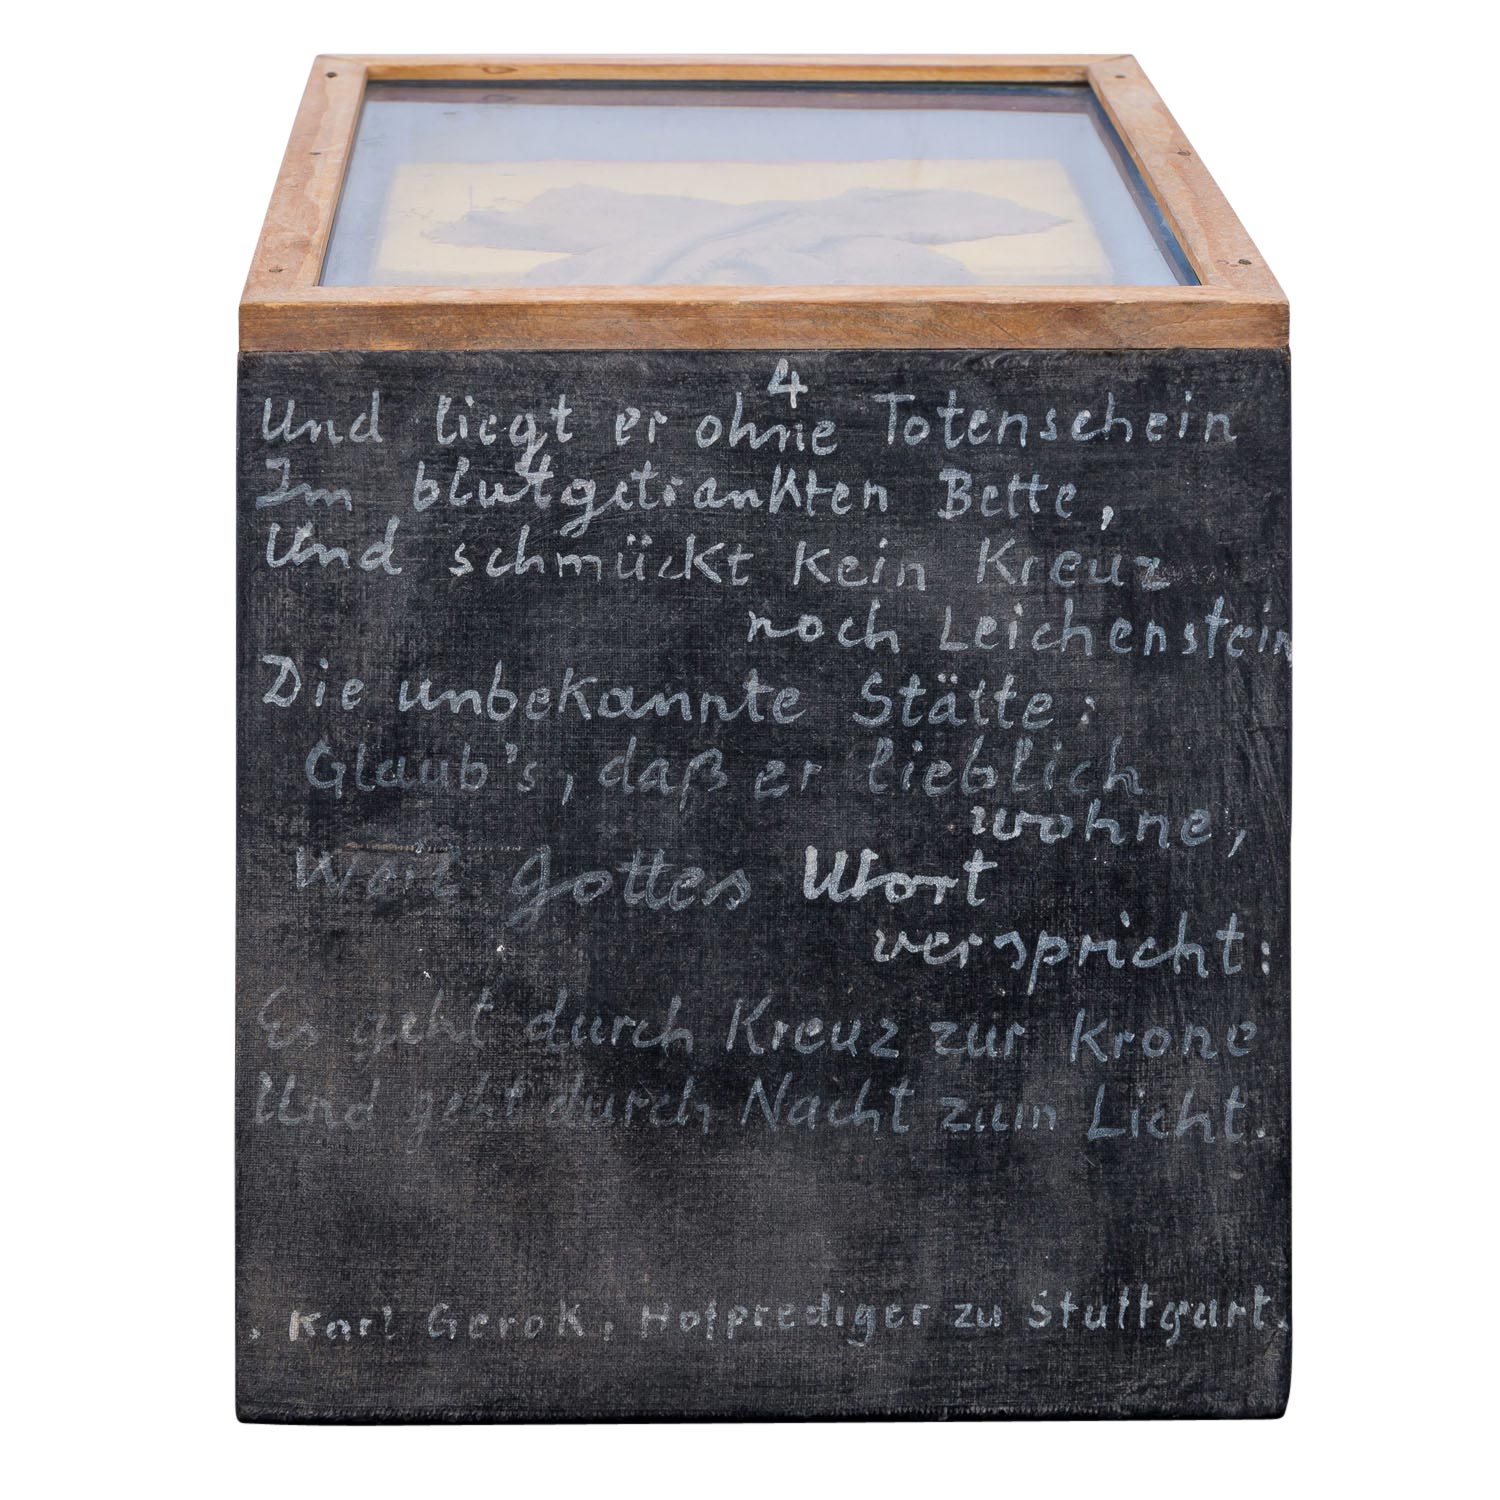 4
Und liegt er ohne Totenschein
Im blutgetränkten Bette,
Und schmückt kein Kreuz
noch Leichenstein
Die unbekannte Stätte:
Glaub's, daß er lieblich
wohne,
Weil Gottes Wort
verspricht:
Es geht durch Kreuz zur Krone
Und geht durch Nacht zum Licht.
Karl Gerok, Hofprediger zu Stuttgart.